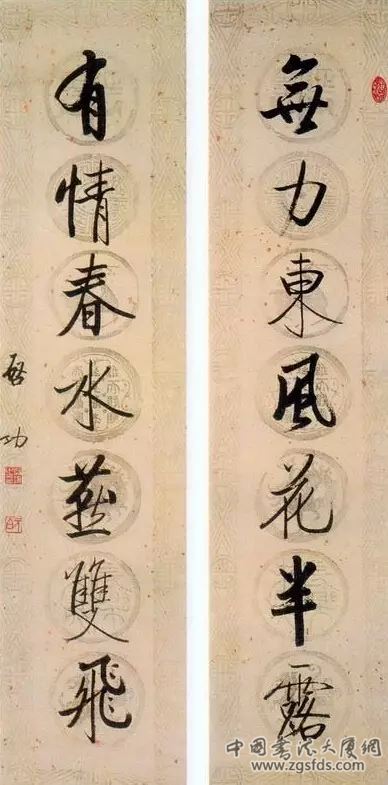 無力東風花半露
有情春水燕雙飛
啓功
中国书法大厦网
www.zgsfds.com